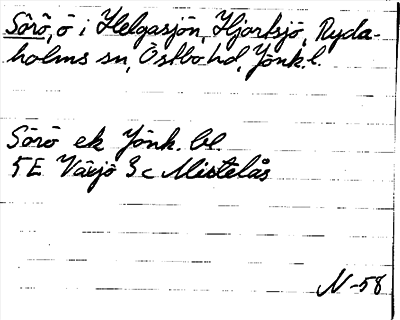 Sörö, ö i Helgasjön, Hjortsjö, Ryda-
holms sn, Östbo hd, Jönk.l.
Sörö ek Jönk. bl.
5E Växjö 3c Mistelås
N-58